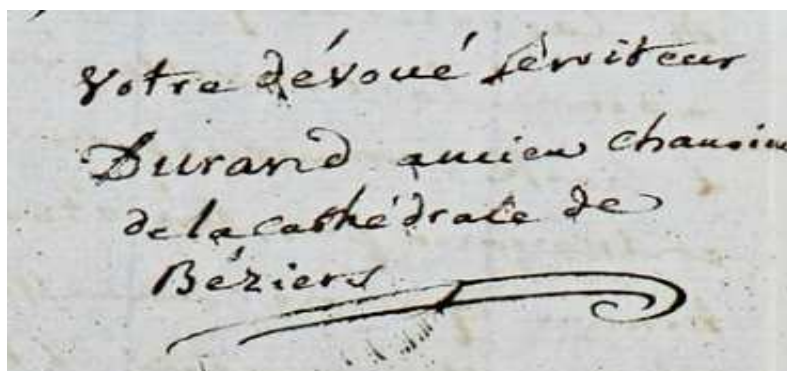 votre dévoué serviteur
Durand ancien chanoine
de la cathédrale de
Béziers